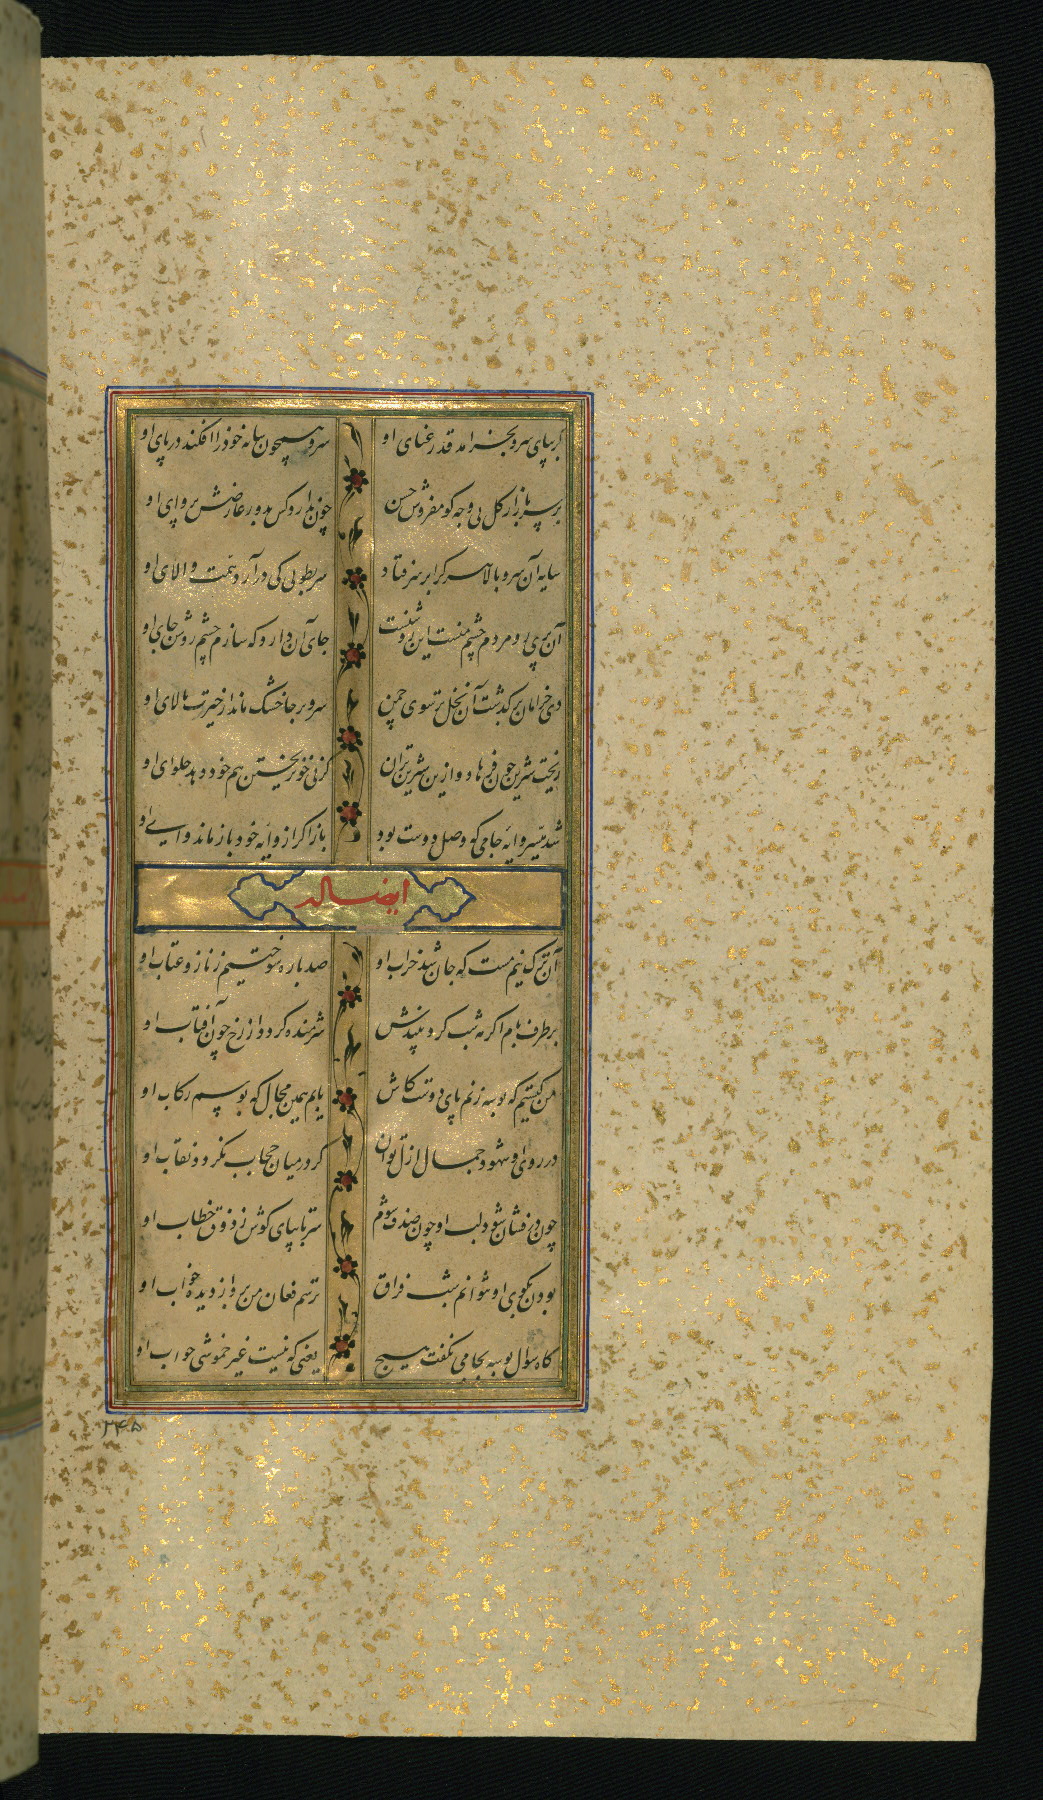 گر بپای سرو بخرامد قد رعنای او سرو همچون سایه خود را افکند در پای او
بر سر بازار گل بی وجه کو مفروش حسن چون ندارد کس بدور عارضش پروای او
سایه آن سرو بالا هر کرا بر سر فتاد سر بطوبی کی درآرد همت والای او
آن پری رو مردم چشم منست این روشنست جای آن دارد که سازم چشم روشن جای او
دی خرامان برگذشت آن نخل تر سوی چمن سرو بر جا خشک ماند از حیرت بالای او
ریخت شیرین خون فرهاد و ازین شیرین تر آن کز پی خون ریختن هم خود دهد حلوای او
شد میسر وایه جامی که وصل دوست بود باز اگر از وایه خود باز ماند وای او
ایضا له
آن ترک نیم مست که جان شد خراب او صد باره سوختیم ز ناز و عتاب او
بر طرف بام اگر مه شب گرد بیندش شرمنده گردد از رخ چون آفتاب او
من کیستم که بوسه زنم پای دوست کاش یابم همین مجال که بوسم رکاب او
در روی او شهود جمال ازل توان گر در میان حجاب نگردد نقاب او
چون درفشان شود لب او چون صدف شوم سر تا بپای گوش ز ذوق خطاب او
بودن بکوی او نتوانم شب فراق ترسم فغان من برد از دیده خواب او
گاه سؤال بوسه بجامی نگفت هیچ یعنی که نیست غیر خموشی جواب او
۲۴۵